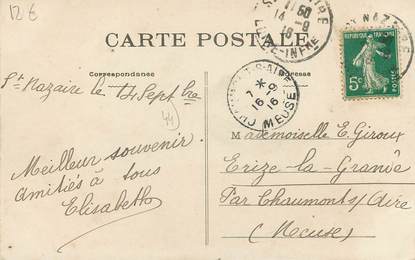 12€
CARTE POSTALE
Correspondance
Adresse
St Nazaire le 14 Septbre
44
Meilleur souvenir.
Amitiés à tous
Elisabeth
Mademoiselle E. Giroux
Erize-la-Grande
Par Chaumont s/ Aire
(Meuse)
14 -9
16
LOIRE-INFRE
NAZAIRE
7 * 16-9
16
MEUSE
5c
POSTES